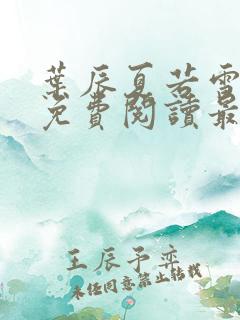 葉辰夏若雪
免費閱讀最
王辰予奕
未經同意禁止轉載